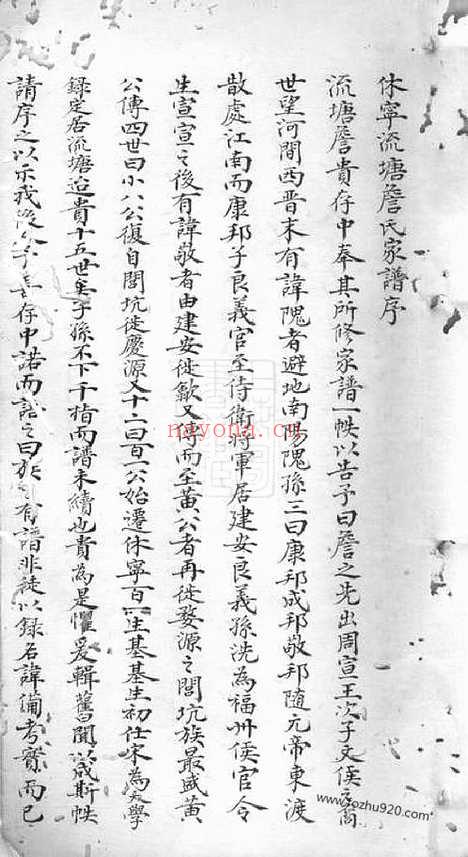 休寧流塘詹氏家譜序
流塘詹貴存中奉其所修家譜一帙以告予曰詹之先出周宣王次子文侯之裔
世望河間西晋末有諱隗者避地南陽隗孫三曰康邦成邦敬邦随元帝東渡
散處江南而康邦子良義官至侍衛將軍居建安良義孫洗為福州侯官令
生宣宣之後有諱敬者由建安徙歙又傳而至黃公者再徙婺源之閭坑族最盛黃
公傳四世曰小八公復自閭坑徙慶源又十二曰百一公始遷休寧百一生基基生初仕宋為太學
録定居流塘迨貴十五世矣子孫不下千指而譜未續也貴為是懼爰輯舊聞以成斯帙
請序之以示我後 存中諾而 之曰 有譜非徒以録名諱備考實而已
nayona.cn
www.zozhu920.com